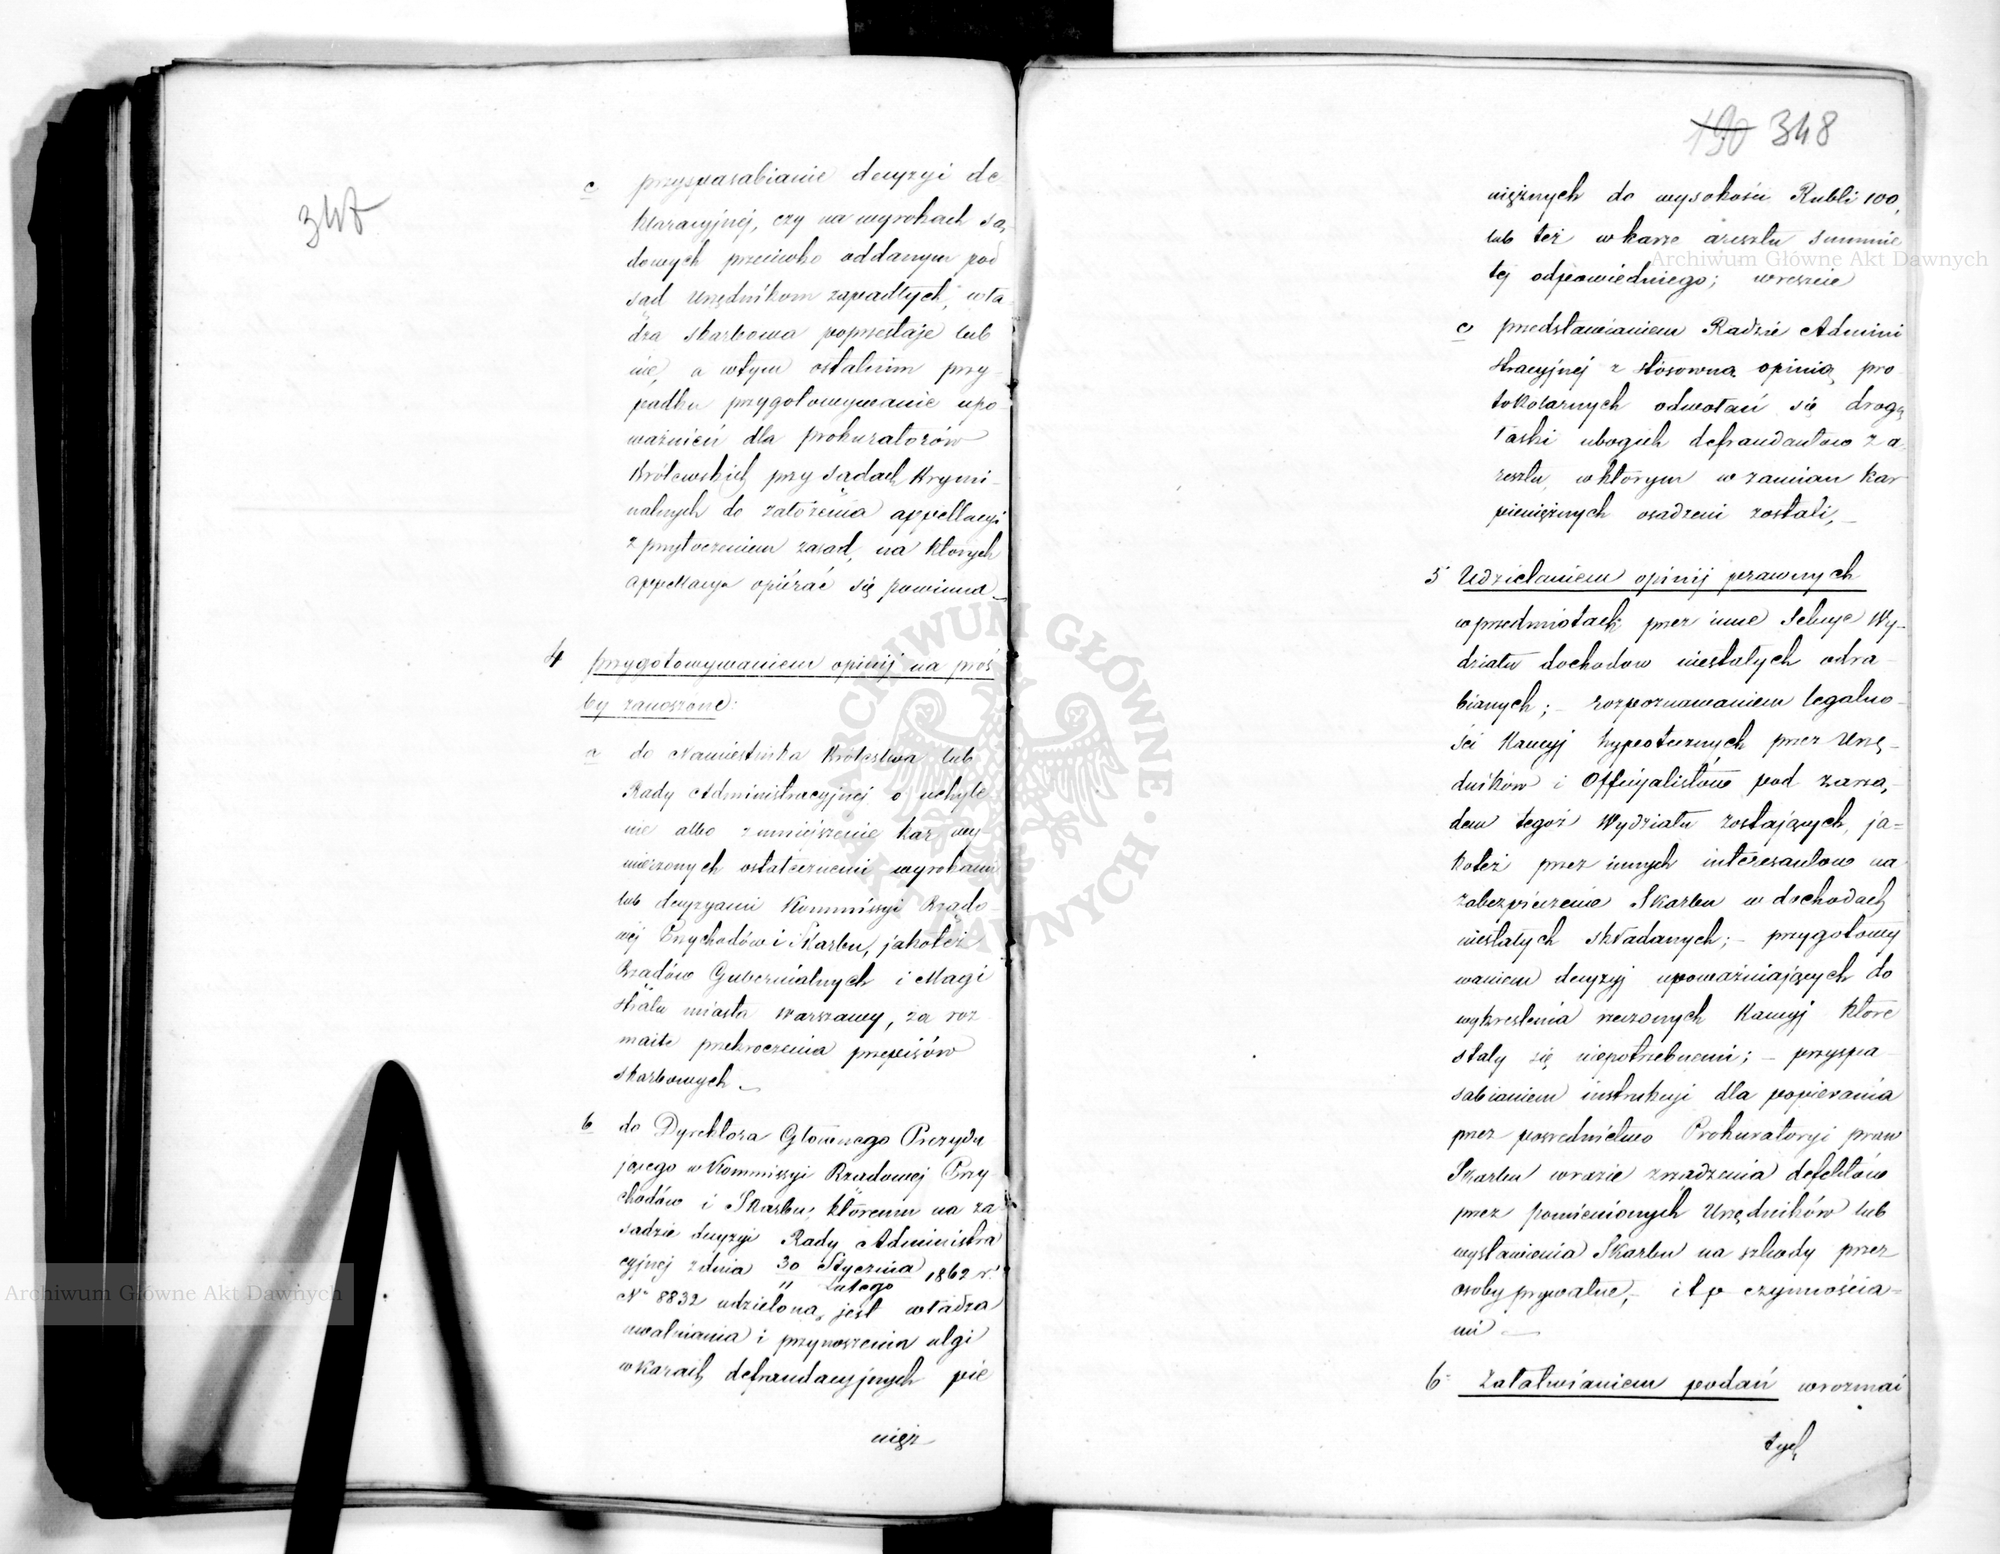 347
c przysposabianie decyzyi de-
klaracyjnej, czy na wyrokach są-
dowych przeciwko oddanym pod
sąd Urzędnikom zapadłych, wła-
dza skarbowa poprzestaje lub
nie, a wtym ostatnim przy-
padku przygotowywanie upo-
ważnień dla prokuratorów
Królewskich przy sądach krymi-
nalnych do założenia appellacyi
z przytoczeniem zasad, na których
appellacya opiérać się powinna_
4 przygotowywaniem opinij na proś
by zanoszone:
a do Namiestnika Królestwa lub
Rady Administracyjnej o uchyle
nie albo zmniejszenie kar wy
mierzonych ostatecznemi wyrokami
lub decyzyami Kommissyi Rządo-
wej Przychodów i Skarbu, jakoteż
Rządów Gubernialnych i Magi
stratu miasta Warszawy, za roz
maite przekroczenia przepisów
skarbowych_
b do Dyrektora Głównego Prezydu
jącego w Kommissyi Rządowej Przy
chodów i Skarbu, któremu na za
sadzie decyzyi Rady Administra
cyjnej zdnia 30 Stycznia / 11 Lutego 1862 r.
Nº 8832 udzieloną jest władza
uwalniania i przynoszenia ulgi
w karach defraudacyjnych pie
nięż
190 348
niężnych do wysokości Rubli 100,
lub też w karze aresztu summie
tej odpowiedniego; wreszcie
c przedstawianiem Radzie Admini
stracyjnej z stósowną opinią pro
tokólarnych odwołań się drogą
łaski ubogich defraudantów z a
resztu, w którym w zamian kar
pieniężnych osadzeni zostali,_
5 Udzielaniem opinij prawnych
w przedmiotach przez inne Sekcye Wy-
działu dochodów niestałych odra-
bianych;- rozpoznawaniem legalno-
ści Kaucyj hypotecznych przez Urzę-
dników i Officyalistów pod zarzą-
dem tegoż Wydziału zostających, ja=
koteż przez innych interesantów na
zabezpieczenie Skarbu w dochodach
niestałych składanych;- przygotowy
waniem decyzyj upoważniających do
wykreślenia rzeczonych Kaucyj które
stały się niepotrzebnemi;- przyspa
sabianiem instrukcyi dla popierania
przez pośrednictwo Prokuratoryi praw
Skarbu w razie zrządzenia defektów
przez pomienionych Urzędników lub
wystawienia Skarbu na szkody przez
osoby prywatne,- i t p czynnościa=
mi_
6= Załatwianiem podań w rozmai
tych
Archiwum Główne Akt Dawnych
Archiwum Główne Akt Dawnych
ARCHIWUM GŁÓWNE AKT DAWNYCH